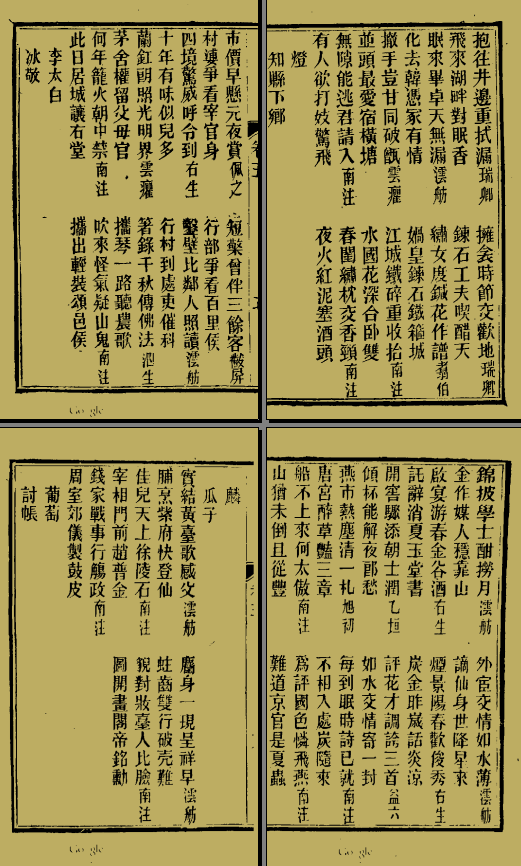 抱往井邊重拭漏瑞卿
擁衾時節交歡地瑞卿
飛來湖畔對眠香
鍊石工夫喫醋天
眠來畢卓天無漏澐舫
繡女度鍼花作譜翥伯
化去韓憑冢有情
媧皇鍊石鐵箍城
撒手豈甘同破甑雲癯
江城鐵碎重收拾南注
並頭最愛宿橫塘
水國花深合臥雙
無隙能逃君請入南注
春閨繡枕交香頸南注
有人欲打妓驚飛
夜火紅泥塞酒頭
燈
知縣下鄉
市價早懸元夜賞佩之
短檠曾伴三餘客黻屏
村連爭看宰官身
行部爭看百里侯
四境驚威呼合到右生
鑿壁比鄰人照讀澐舫
十年有味似兒多
行村到處吏催科
蘭釭朝照光明界雲癯
箸錄千秋傳佛法泗生
茅舍權留父母官
攜琴一路聽農歌
何年籠火朝中禁南注
吹來怪氣疑山鬼南注
此日居城讓右堂
攜出輕裝頌邑侯
李太白
冰敬
錦披學士酣撈月澐舫
外宦交情如水薄澐舫
金作媒人穩靠山
謫仙身世降星來
啟宴游春金谷酒右生
煙景陽春歡俊秀右生
託辭消夏玉堂書
炭金昨歲話炎涼
開窖驟添朝士潤乙垣
評花才調誇三首益六
傾杯能解夜郎愁
如水交情寄一封
燕市熱塵清一札旭初
每到眠時詩已就南注
唐宮醉草豔三章
不相入處炭隨來
船不上來何太傲南注
爲評國色憐飛燕南注
山猶未倒且從豐
難道京官是夏蟲
麟
瓜子
實結黃臺歌感父澐舫
麕身一現呈祥早澐舫
脯烹紫府快登仙
蛀齒雙行破売難
佳兒天上徐陵石南注
覬對妝臺人比臉南注
宰相門前趙普金
圖開畫閣帝銘勳
錢家戰事行觴政南注
周室郊儀製鼓皮
葡萄
討帳
Google
Google
Google